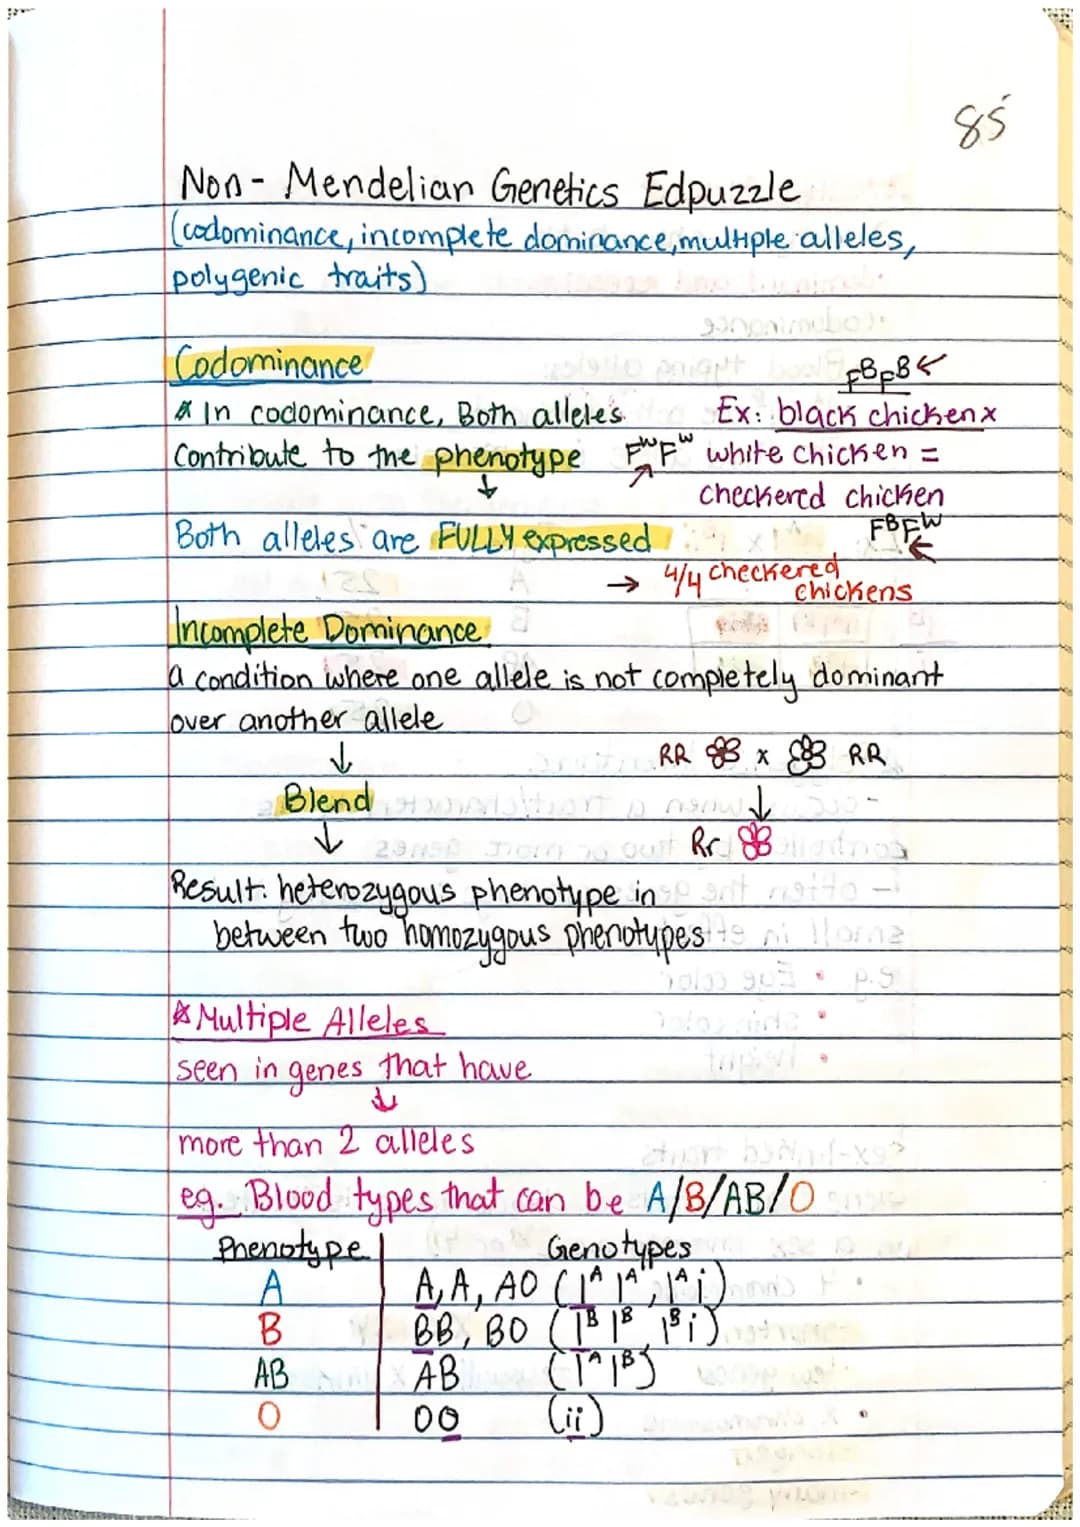 85
Non- Mendelian Genetics Edpuzzle
(codominance, incomplete dominance, multiple alleles,
polygenic traits)
Codominance
FBFB
In codominance, Both allele's
Ex: black chicken x
Contribute to the phenotype
FWFW white chicken =
checkered chicken
Both alleles are FULLY expressed
FBFW
→ 4/4 checkered
chickens
Incomplete Dominance
a condition where one allele is not completely dominant
over another allele
↓
RR x RR
Blend
↓
↓
Rr
Result: heterozygous phenotype in
between two homozygous phenotypes
Multiple Alleles
seen in genes that have
↓
more than 2 alleles
eg. Blood types that can be A/B/AB/O
Phenotype Genotypes
A A,A, AO (IA IA, IAi)
B BB, BO (IB IB, IBi)
AB AB (IA IB)
O OO (ii)